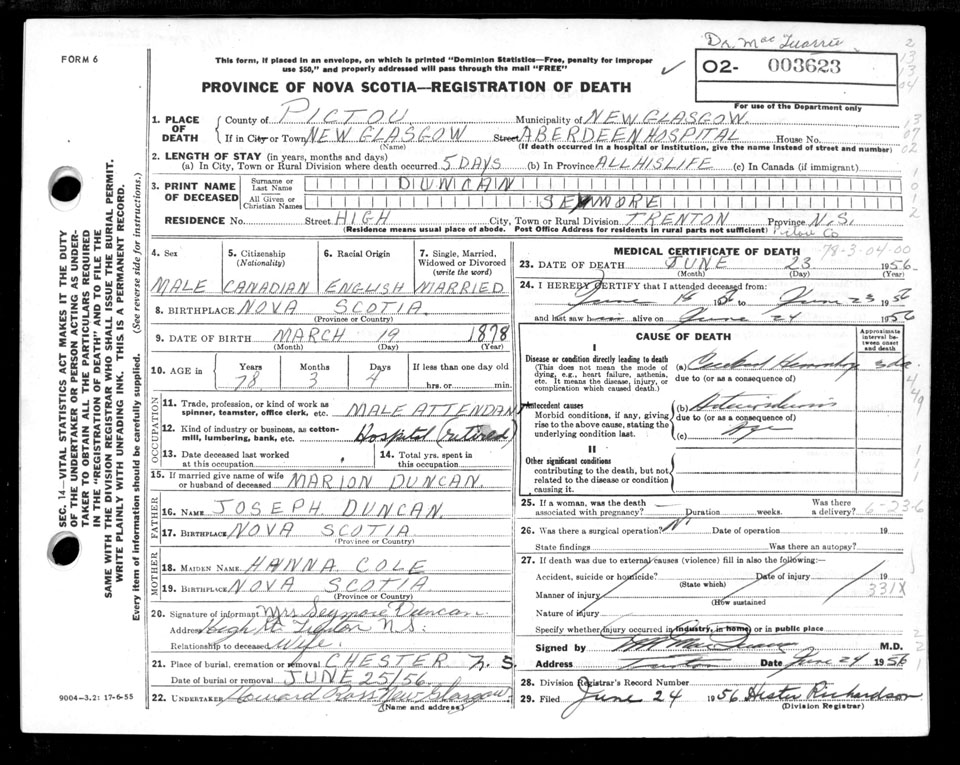 Dr. MacQuarrie
FORM 6
This form, if placed in an envelope, on which is printed "Dominion Statistics—Free, penalty for improper
use $50," and properly addressed will pass through the mail "FREE"
✓
O2- 003623
For use of the Department only
PROVINCE OF NOVA SCOTIA—REGISTRATION OF DEATH
1. PLACE OF DEATH
County of PICTOU Municipality of NEW GLASGOW.
If in City or Town NEW GLASGOW Street ABERDEEN HOSPITAL House No.
(Name) (If death occurred in a hospital or institution, give the name instead of street and number)
2. LENGTH OF STAY (in years, months and days)
(a) In City, Town or Rural Division where death occurred 5 DAYS (b) In Province ALL HIS LIFE (c) In Canada (if immigrant)
3. PRINT NAME OF DECEASED
Surname or Last Name DUNCAN
All Given or Christian Names SEYMORE
RESIDENCE No. Street HIGH City, Town or Rural Division TRENTON Province N.S.
(Residence means usual place of abode. Post Office Address for residents in rural parts not sufficient) Pictou Co
4. Sex 5. Citizenship (Nationality) 6. Racial Origin 7. Single, Married, Widowed or Divorced (write the word)
MALE CANADIAN ENGLISH MARRIED
8. BIRTHPLACE NOVA SCOTIA
(Province or Country)
9. DATE OF BIRTH MARCH 19 1878
(Month) (Day) (Year)
10. AGE in Years Months Days If less than one day
78 3 4 hrs. or min.
OCCUPATION
11. Trade, profession, or kind of work as spinner, teamster, office clerk, etc. MALE ATTENDANT
12. Kind of industry or business, as cotton-mill, lumbering, bank, etc. Hospital (retired)
13. Date deceased last worked at this occupation
14. Total yrs. spent in this occupation
15. If married give name of wife or husband of deceased MARION DUNCAN.
FATHER
16. NAME JOSEPH DUNCAN.
17. BIRTHPLACE NOVA SCOTIA
(Province or Country)
MOTHER
18. MAIDEN NAME HANNA COLE
19. BIRTHPLACE NOVA SCOTIA
(Province or Country)
20. Signature of informant Mrs Seymore Duncan
Address High St Trenton N.S.
Relationship to deceased Wife.
21. Place of burial, cremation or removal CHESTER N.S.
Date of burial or removal JUNE 25/56.
22. UNDERTAKER Howard Ross New Glasgow
(Name and address)
MEDICAL CERTIFICATE OF DEATH 78-3-04-00
23. DATE OF DEATH JUNE 23 1956.
(Month) (Day) (Year)
24. I HEREBY CERTIFY that I attended deceased from:
June 18 1956 to June 23 1956
and last saw him alive on June 24 1956
CAUSE OF DEATH
Approximate interval between onset and death
I
Disease or condition directly leading to death
(This does not mean the mode of dying, e.g., heart failure, asthenia, etc. It means the disease, injury, or complication which caused death.)
(a) Cerebral Hemorrhage 3 da.
due to (or as a consequence of)
Antecedent causes
Morbid conditions, if any, giving rise to the above cause, stating the underlying condition last.
(b)
due to (or as a consequence of)
(c) Age
II
Other significant conditions
contributing to the death, but not related to the disease or condition causing it.
25. If a woman, was the death associated with pregnancy? Duration weeks. Was there a delivery? 6-23-6
26. Was there a surgical operation? No Date of operation 19
State findings Was there an autopsy?
27. If death was due to external causes (violence) fill in also the following:—
Accident, suicide or homicide? Date of injury 19
(State which)
Manner of injury 331X
(How sustained)
Nature of injury
Specify whether injury occurred in industry, in home, or in public place
Signed by M.D.
Address Trenton Date June 24 1956
28. Division Registrar's Record Number
29. Filed June 24 1956 Hester Richardson
(Division Registrar)
SEC. 14—VITAL STATISTICS ACT MAKES IT THE DUTY
OF THE UNDERTAKER OR PERSON ACTING AS UNDER-
TAKER TO OBTAIN ALL THE PARTICULARS REQUIRED
IN THE "REGISTRATION OF DEATH" AND TO FILE THE
SAME WITH THE DIVISION REGISTRAR WHO SHALL ISSUE THE BURIAL PERMIT.
WRITE PLAINLY WITH UNFADING INK. THIS IS A PERMANENT RECORD.
Every item of information should be carefully supplied. (See reverse side for instructions.)
9004-3.21 17-6-55